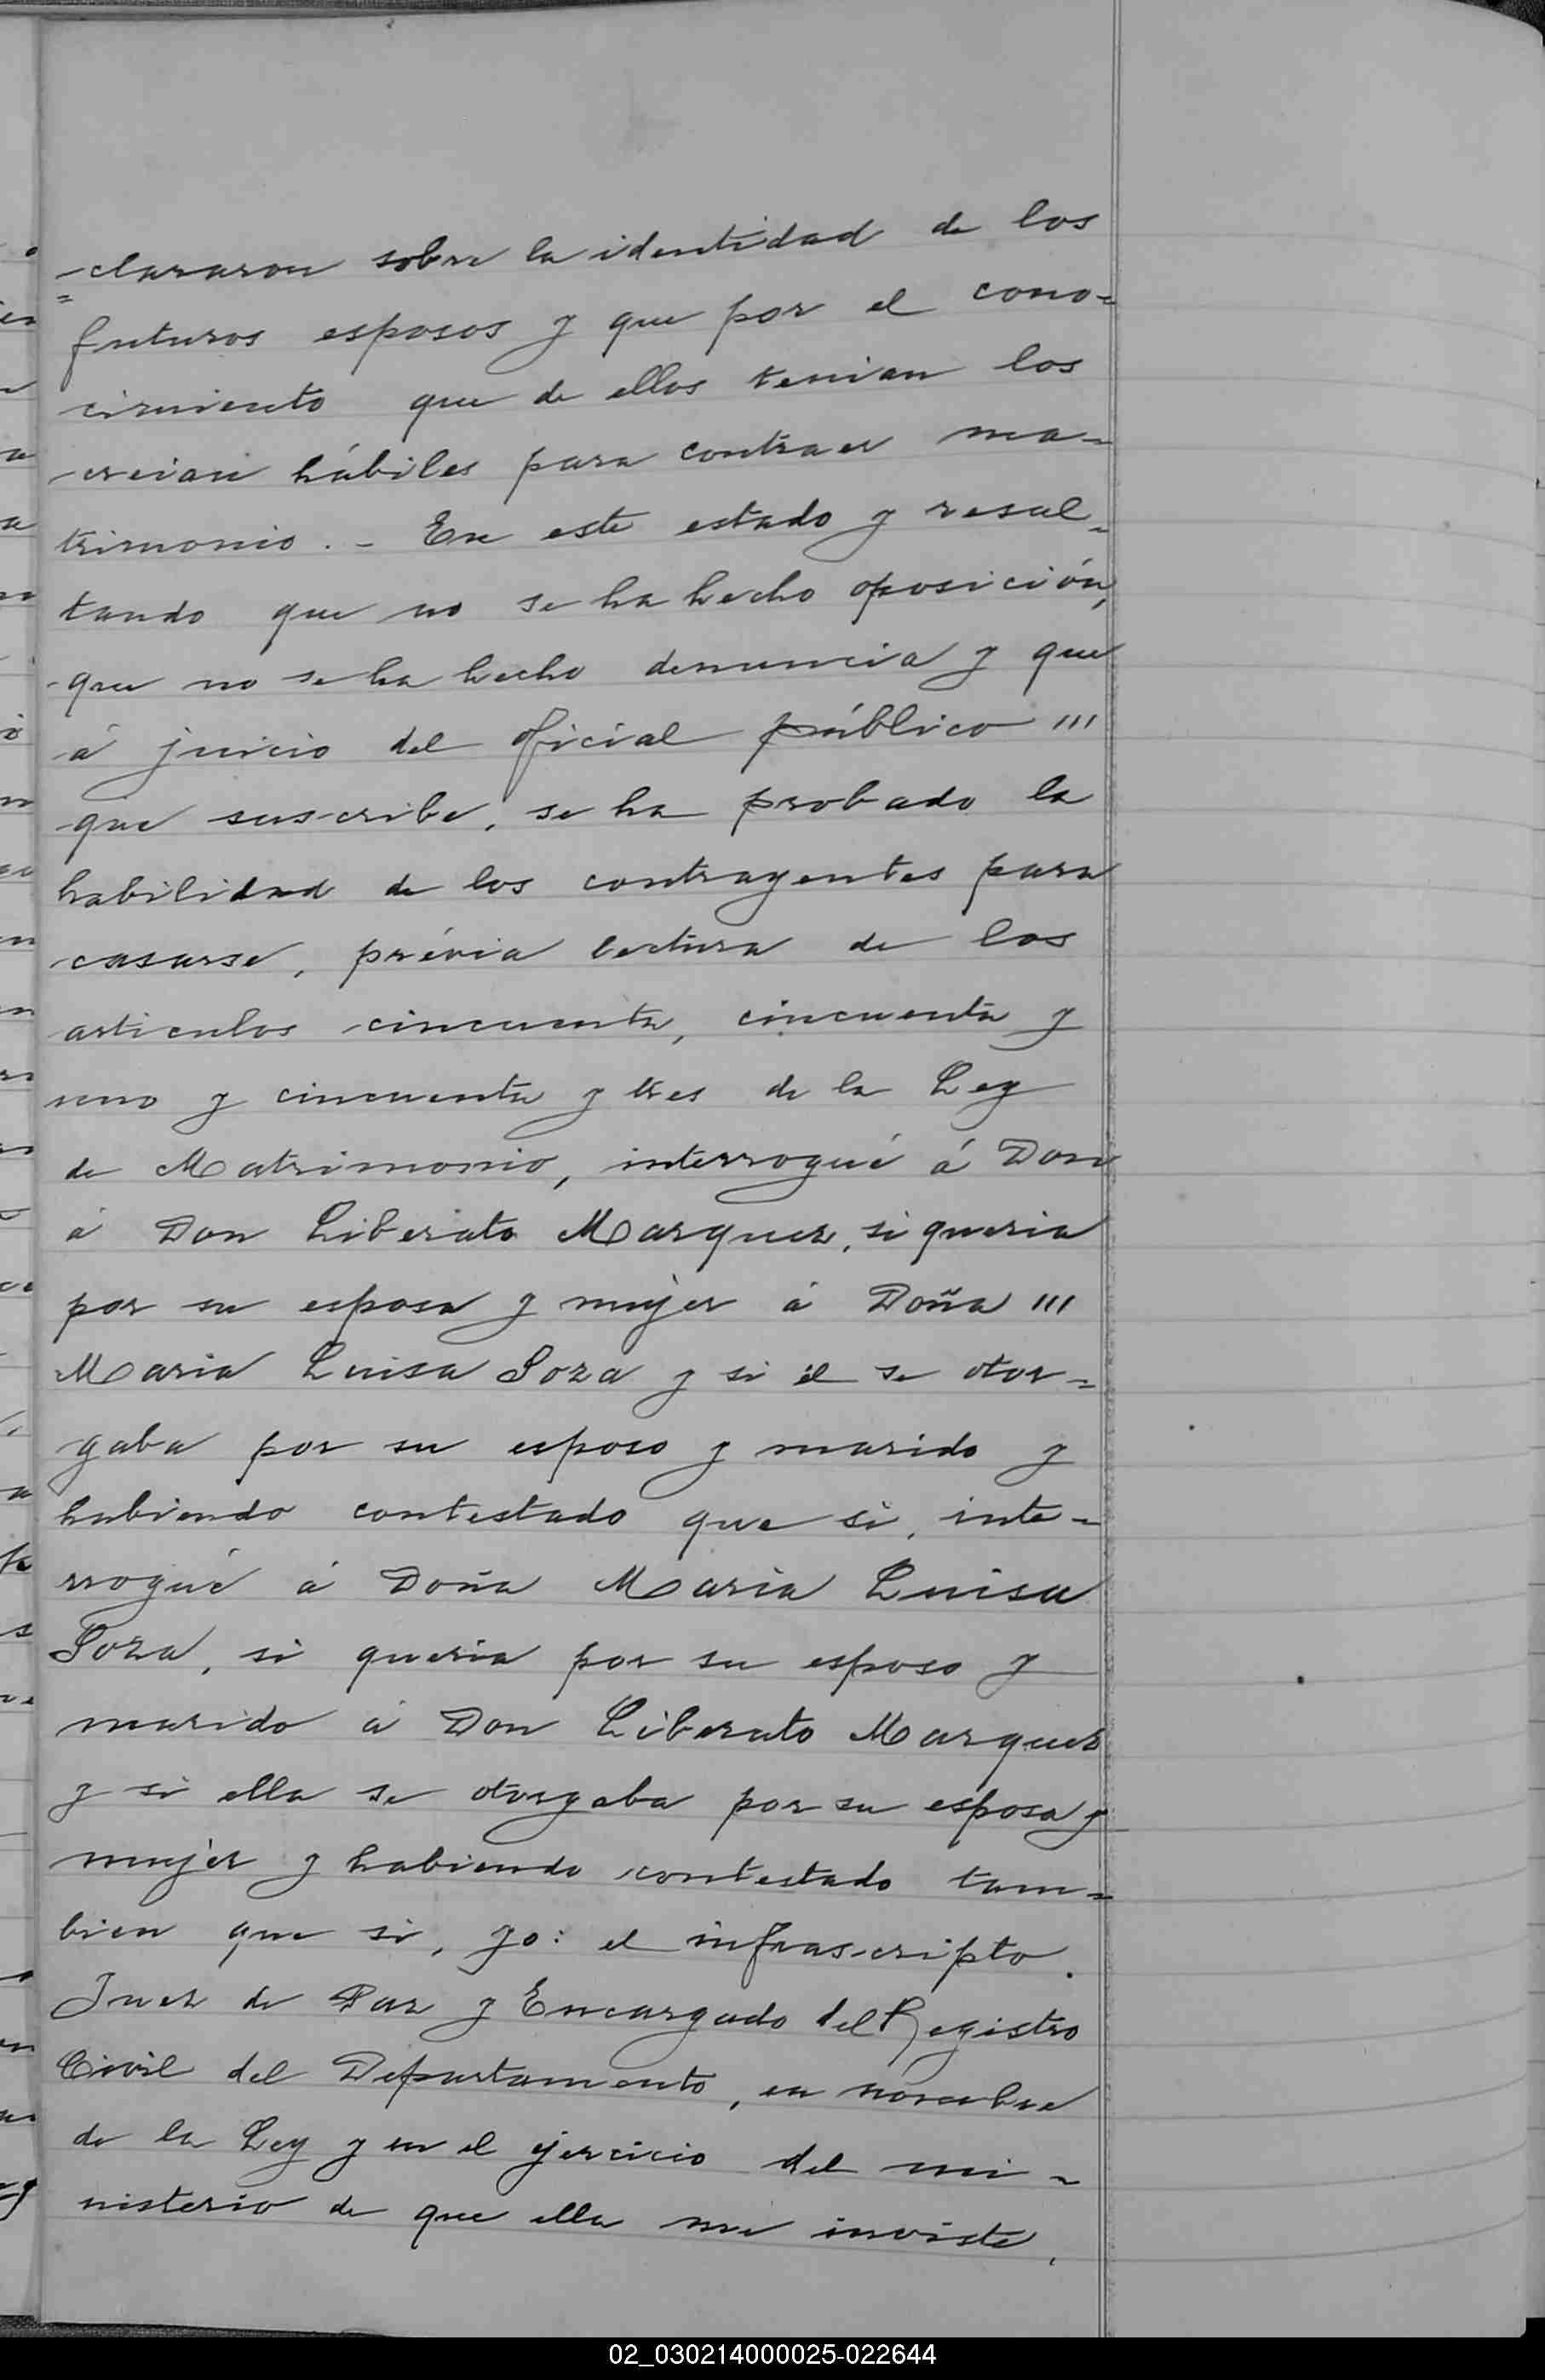 =clararon sobre la identidad de los
futuros esposos y que por el cono=
cimiento que de ellos tenian los
creian hábiles para contraer ma=
trimonio.- En este estado y resul=
tando que no se ha hecho oposición,
que no se ha hecho denuncia y que
á juicio del oficial público '''
que suscribe, se ha probado la
habilidad de los contrayentes para
casarse, prévia lectura de los
articulos cincuenta, cincuenta y
uno y cincuenta y tres de la Ley
de Matrimonio, interrogué á Don
á Don Liberato Marquez, si queria
por su esposa y mujer á Doña '''
Maria Luisa Soza y si él se otor=
gaba por su esposo y marido y
habiendo contestado que si, inte=
rrogué á Doña Maria Luisa
Soza, si queria por su esposo y
marido á Don Liberato Marquez
y si ella se otorgaba por su esposa y
mujer y habiendo contestado tam=
bien que si, yo: el infrascripto.
Juez de Paz y Encargado del Registro
Civil del Departamento, en nombre
de la Ley y en el ejercicio del mi=
nisterio de que ella me inviste,
02_030214000025-022644